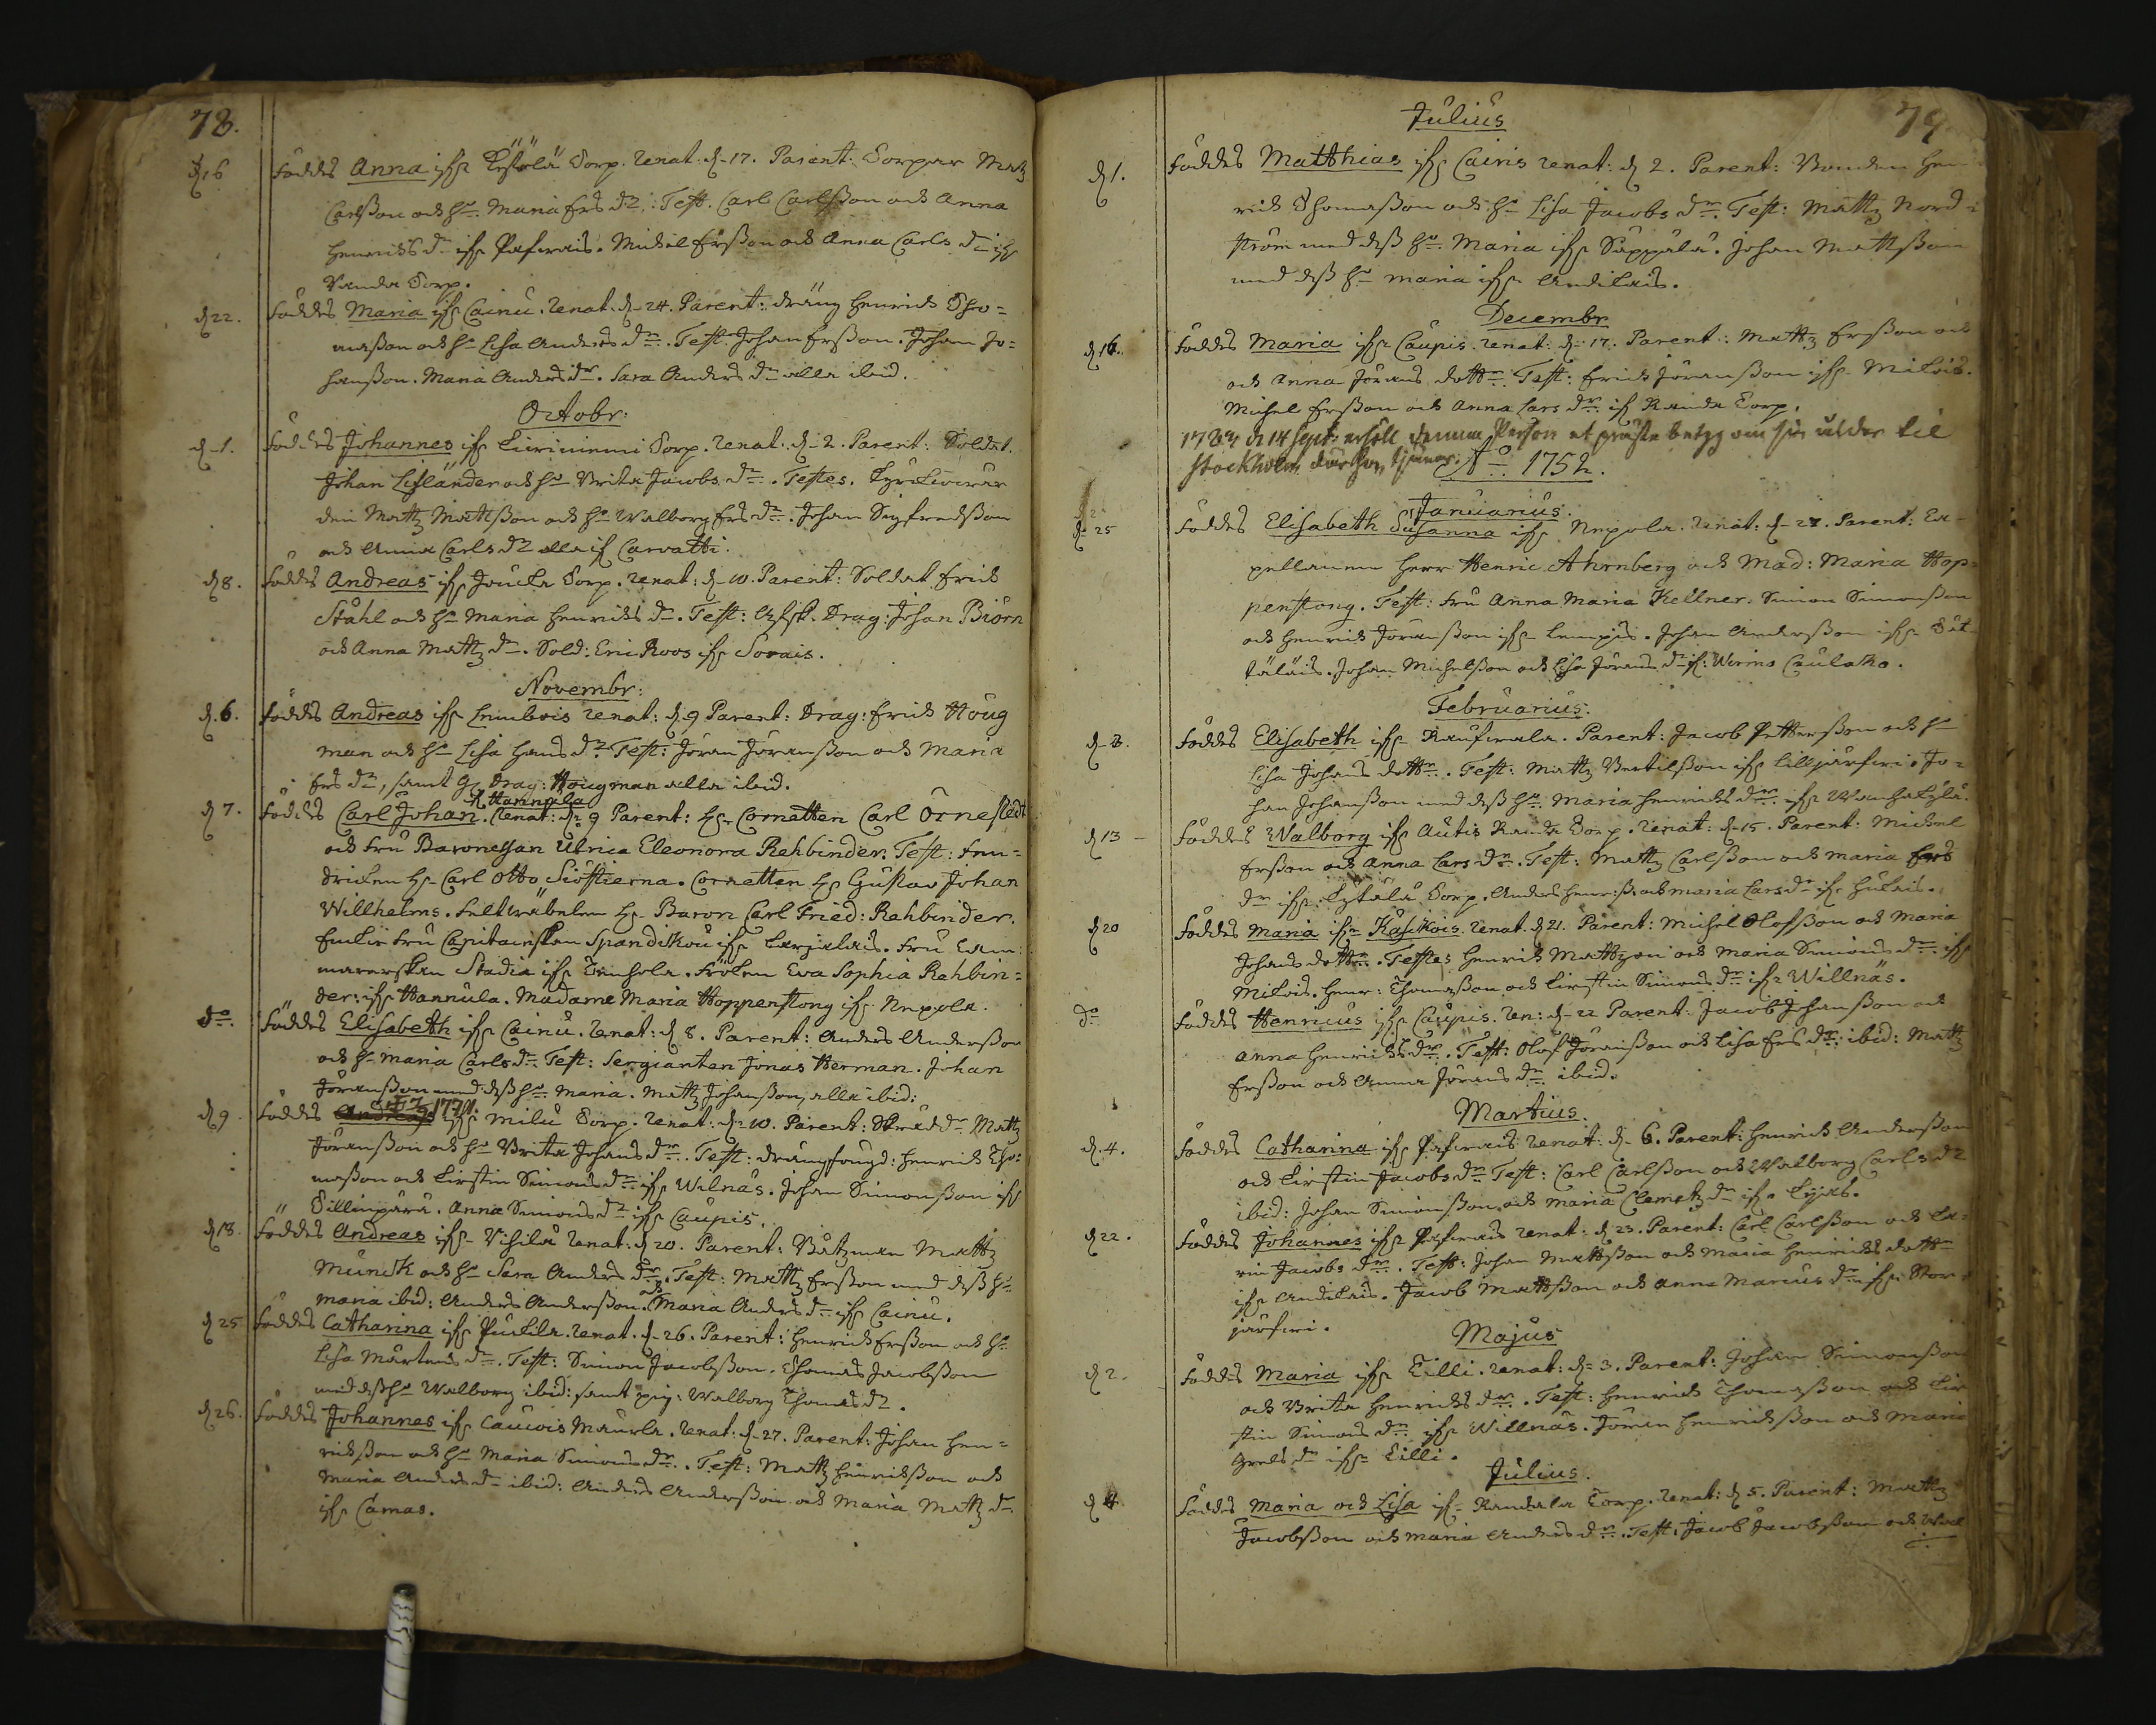 78.
d 16 Föddes Anna ifr. Torp. Renat: d. 17. Parent: Torpar Matz
Carlsson och h. Maria Ers dr: Test. Carl Carlsson och Anna
Henrichs dr ifr Pafwais. Michel Ersson och Anna Carls dr ifr
Randa Torp.
d 22. Föddes Maria ifr Cainu. Renat. d. 24. Parent: dräng Henrich Tho=
masson och h. Lisa Anders dr. Test. Johan Ersson. Johan Jo=
hansson. Maria Anders dr. Sara Anders dr alla ibid.
Octobr:
d. 1. Föddes Johannes ifr Torp. Renat: d. 2. Parent: Soldat.
Johan Lifländer och h. Brita Jacobs dr. Testes.
den Mattz Mattsson och h. Walborg Ers dr. Johan Sigfredsson
och Anna Carls dr alla if Carvatti.
d 8. Föddes Andreas ifr Torp. Renat: d. 10. Parent: Soldat Erich
Ståhl och h. Maria Henrichs dr. Test: Drag: Johan Biörn
och Anna Mattz dr. Sold: Eric Roos ifr Sorais.
Novembr:
d. 6. Föddes Andreas ifr Renat: d. 9 Parent: Drag: Erich Houg
man och h. Lisa Hans dr. Test: Jöran Jöransson och Maria
Ers dr, samt Drag: Hougman alla ibid.
d 7. Föddes Carl Johan. if Hannula Renat: d. 9 Parent: Hr Cornetten Carl Örnestedt
och Fru Baronessan Ulrica Eleonora Rehbinder. Test: Fen=
driken Hr Carl Otto Siöstierna. Cornetten Hr Gustav Johan
Willhelms. Feltwäbelen Hr Baron Carl Fried: Rehbinder.
Enkie Fru Capitainskan Spandikou ifr. Fru Cam
marerskan Stadia ifr. Fröken Eva Sophia Rehbin=
der: ifr Hannula. Madame Maria Hoppenstong ifr Nepola.
do. Föddes Elisabeth ifr Cainu. Renat: d 8. Parent: Anders Andersson
och h. Maria Carls dr. Test: Sergianten Jonas Herman. Johan
Jöransson med dess h. Maria. Mattz Johansson, alla ibid:
d 9. Föddes Andreas 1771. ifr Milu Torp. Renat: d. 10. Parent: Mattz
Jöransson och h. Brita Johans dr. Test: drängfougd: Henrich Tho:
masson och Kirstin Simons dr ifr Wilnäs. Johan Simonsson ifr
Anna Simons dr ifr Caupis.
d 18. Föddes Andreas ifr Renat: d 20. Parent: Båtzman Mattz
Munck och h. Sara Anders dr. Test: Mattz Ersson med dess h.
Maria ibid: Anders Andersson. och Maria Anders dr ifr Cainu.
d 25 Föddes Catharina ifr Puckila. Renat. d. 26. Parent: Henrich Ersson och h.
Lisa Mårtens dr. Test: Simon Jacobsson. Thomas Jacobsson
med dess h. Walborg ibid: samt pig: Walborg Thomas dr.
d 26. Föddes Johannes ifr Renat: d. 27. Parent: Johan Hen=
richsson och h. Maria Simons dr. Test: Mattz Henrichsson och
Maria Anders dr ibid: Anders Andersson och Maria Mattz dr
ifr Camas.
79
Julius
d 1. Föddes Matthias ifr Cairis renat: d 2. Parent: Bonden Hen
rich Thomasson och h. Lisa Jacobs dr. Test: Mattz Nord=
ström med dess h. Maria ifr Säppälä. Johan Mattsson
med dess h. Maria ifr Andilais.
Decembr
d 16. Föddes Maria ifr Caupis. renat: d. 17. Parent: Mattz Ersson och
och Anna Jörans dottr. Test: Erich Jöransson ifr Milois.
Michel Ersson och Anna Lars dr. if Randa Torp.
17 d 14 Sept: erhölt denna Person et prästebetyg om sin ålder til
Stockholm der hon tjenar.
Ao. 1752.
Januarius.
d. 25 Föddes Elisabeth Susanna ifr Nepola. Renat: d. 27. Parent: Ca=
pellanen Herr Henric Ahrnberg och Mad: Maria Hop=
penstong. Test: Fru Anna Maria Kellner. Simon Simonsson
och Henrich Jöransson ifr Lempis. Johan Andersson ifr
Johan Michelsson och Lisa Jörans dr if: Wermo Caulatko.
Februarius.
d. 8. Föddes Elisabeth ifr. Parent: Jacob Pettersson och h.
Lisa Johans dottr. Test: Mattz Bertilsson ifr Lilljärfwi. Jo=
han Johansson med dess h. Maria Henrichs dr. ifr Wanhakylä.
d 13 Föddes Walborg ifr Autis Randa Torp. Renat: d. 15. Parent: Michel
Ersson och Anna Lars dr. Test: Mattz Carlsson och Maria Ers
dr ifr Torp. Anders Henrss. och Maria Lars dr ifr.
d 20 Föddes Maria ifr Käsikois. Renat. d 21. Parent: Michel Olofsson och Maria
Johans dottr. Testes Henrich Mattzon och Maria Simons dr ifr
Milois. Henr: Thomasson och Kirstin Simons dr ifr Willnäs.
do Föddes Henricus ifr Caupis. Ren: d. 22 Parent: Jacob Johansson och
Anna Henrichs dr. Test: Olof Jöransson och Lisa Ers dr: ibid: Mattz
Ersson och Anna Jörans dr ibid.
Martius.
d. 4. Föddes Catharina ifr Pafwais: Renat: d. 6. Parent: Henrich Andersson
och Kirstin Jacobs dr. Test: Carl Carlsson och Walborg Carls dr
ibid: Johan Simonsson och Maria Clemetz dr ifr.
d 22. Föddes Johannes ifr Pafwais Renat: d 23. Parent: Carl Carlsson och Ca=
rin Jacobs dr. Test: Johan Mattsson och Maria Henrichs dottr
ifr Andilais. Jacob Mattsson och Anna Marcus dr ifr Stor=
järfwi.
Majus
d 2. Föddes Maria ifr Tilli. Renat: d. 3. Parent: Johan Simonsson
och Brita Henrichs dr. Test: Henrich Thomasson och Kir
stin Simons dr ifr Willnäs. Jöran Henrichsson och Maria
Greels dr ifr Tilli.
Julius.
d 4. Föddes Maria och Lisa if Randala Torp. Renat: d 5. Parent: Mattz
Jacobsson och Maria Anders dr. Test: Jacob Jacobsson och Wal